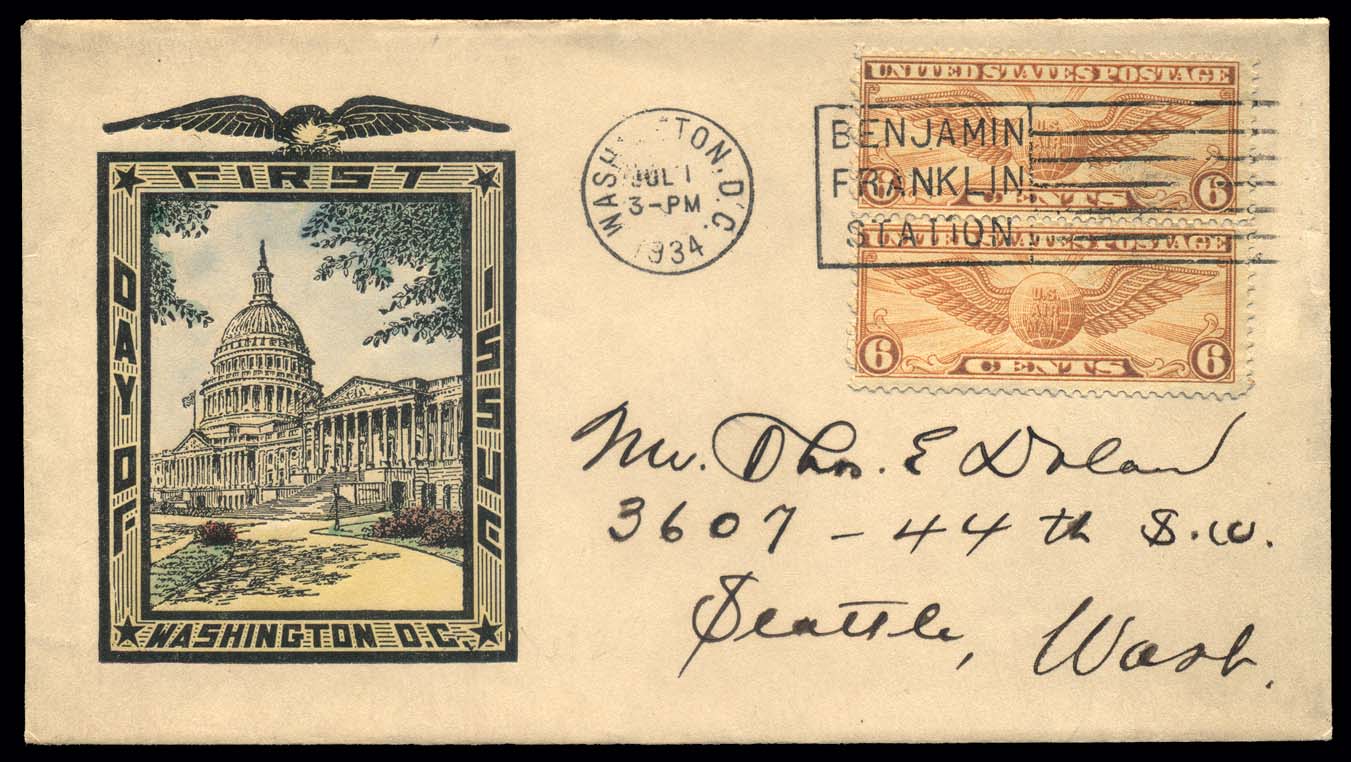 FIRST
DAY OF
ISSUE
WASHINGTON D.C.
WASHINGTON, D.C.
JUL 1
3-PM
1934
BENJAMIN
FRANKLIN
STATION
UNITED STATES POSTAGE
U.S.
6 CENTS 6
UNITED STATES POSTAGE
U.S.
AIR
MAIL
6 CENTS 6
Mr. Thos. E Doland
3607 - 44 th S.W.
Seattle, Wash.